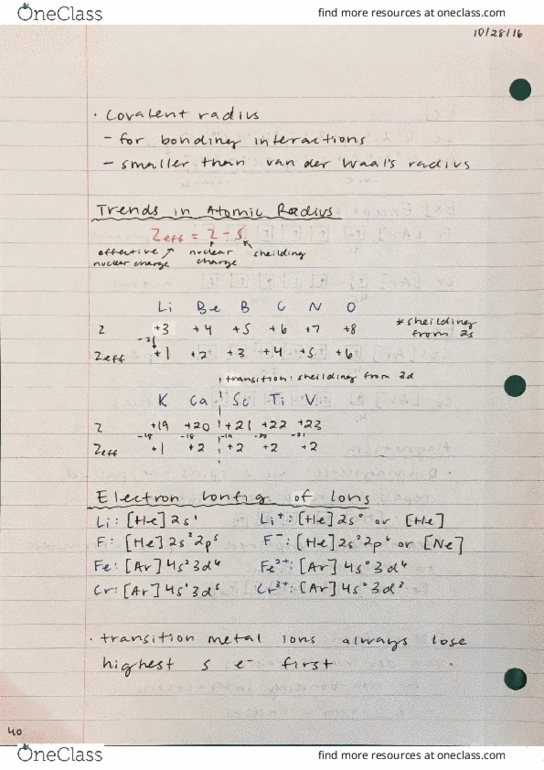 OneClass find more resources at oneclass.com
10/28/16
· covalent radius
- for bonding interactions
- smaller than van der Waal's radius
Trends in Atomic Radius
Zeff = Z - S
effective nuclear sheilding
nuclear charge charge
Li Be B C N O
Z +3 +4 +5 +6 +7 +8 *sheilding from 2s
-2
Zeff +1 +2 +3 +4 +5 +6
transition: sheilding from 3d
K Ca Sc Ti V
Z +19 +20 +21 +22 +23
-18 -18 -19 -20 -21
Zeff +1 +2 +2 +2 +2
Electron Config. of Ions
Li: [He] 2s¹ Li⁺: [He] 2s⁰ or [He]
F: [He] 2s² 2p⁵ F⁻: [He] 2s² 2p⁶ or [Ne]
Fe: [Ar] 4s² 3d⁶ Fe²⁺: [Ar] 4s⁰ 3d⁶
Cr: [Ar] 4s¹ 3d⁵ Cr³⁺: [Ar] 4s⁰ 3d³
· transition metal ions always lose
highest s e⁻ first
40
OneClass find more resources at oneclass.com